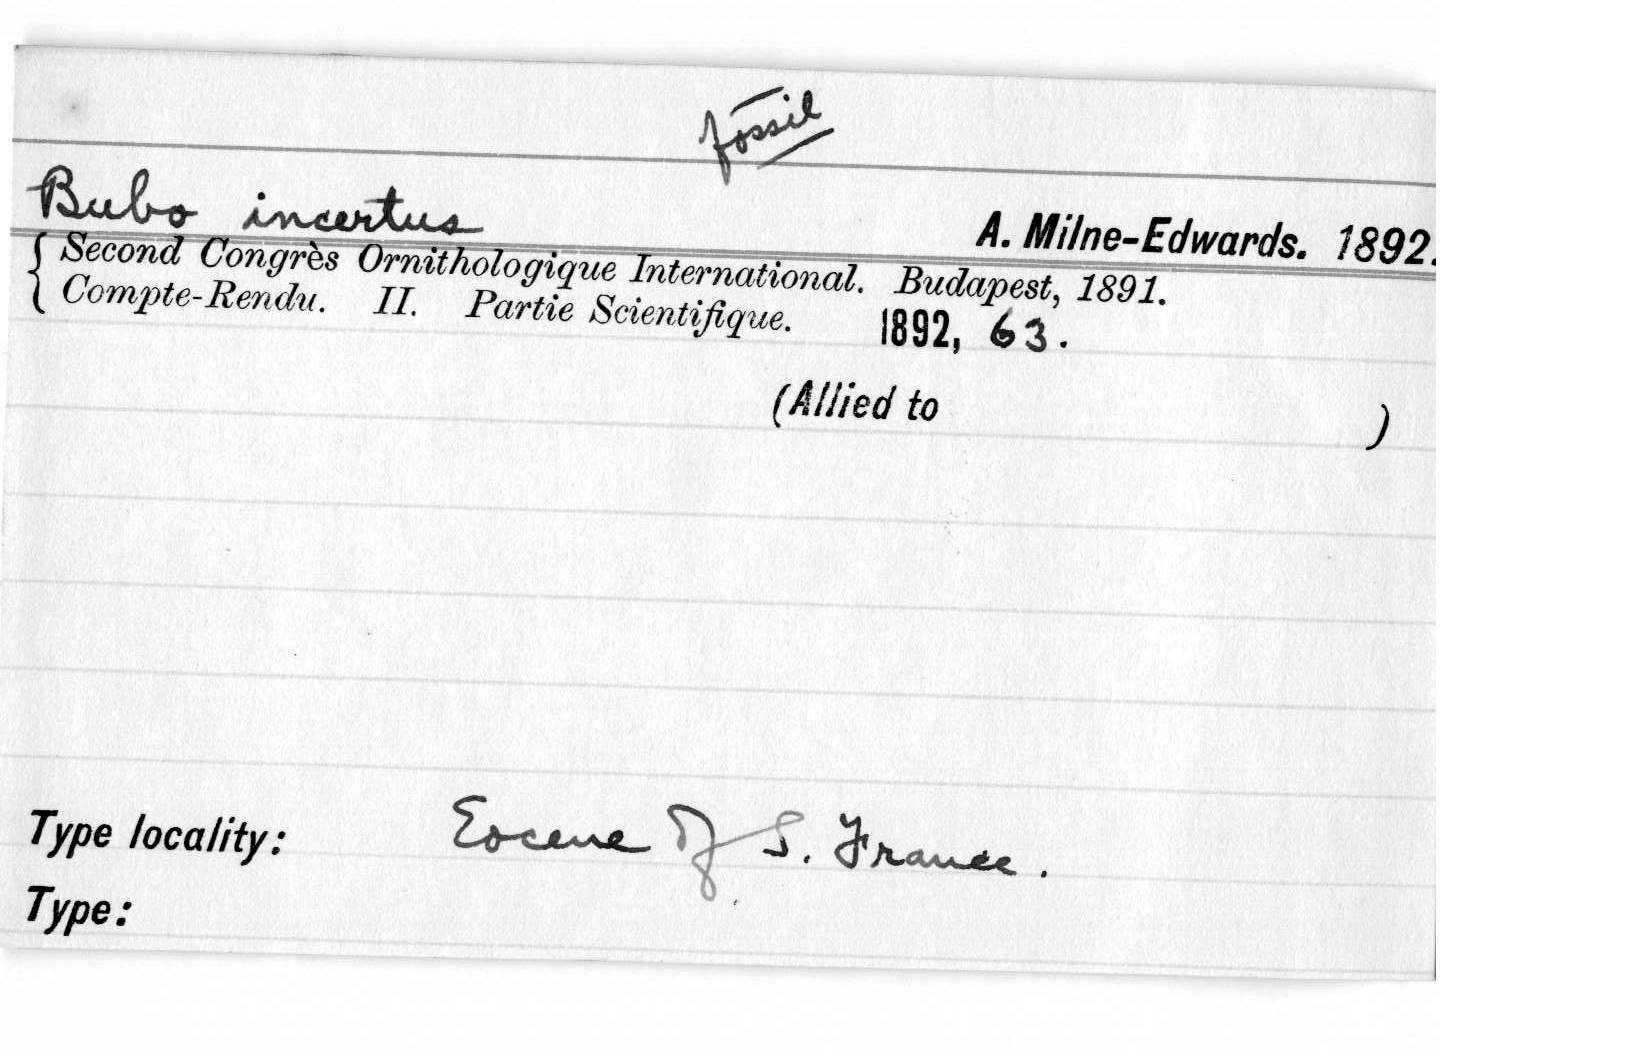 fossil
Bubo incertus A. Milne-Edwards. 1892.
{ Second Congrès Ornithologique International. Budapest, 1891.
Compte-Rendu. II. Partie Scientifique. 1892, 63.
(Allied to )
Type locality: Eocene of S. France.
Type: